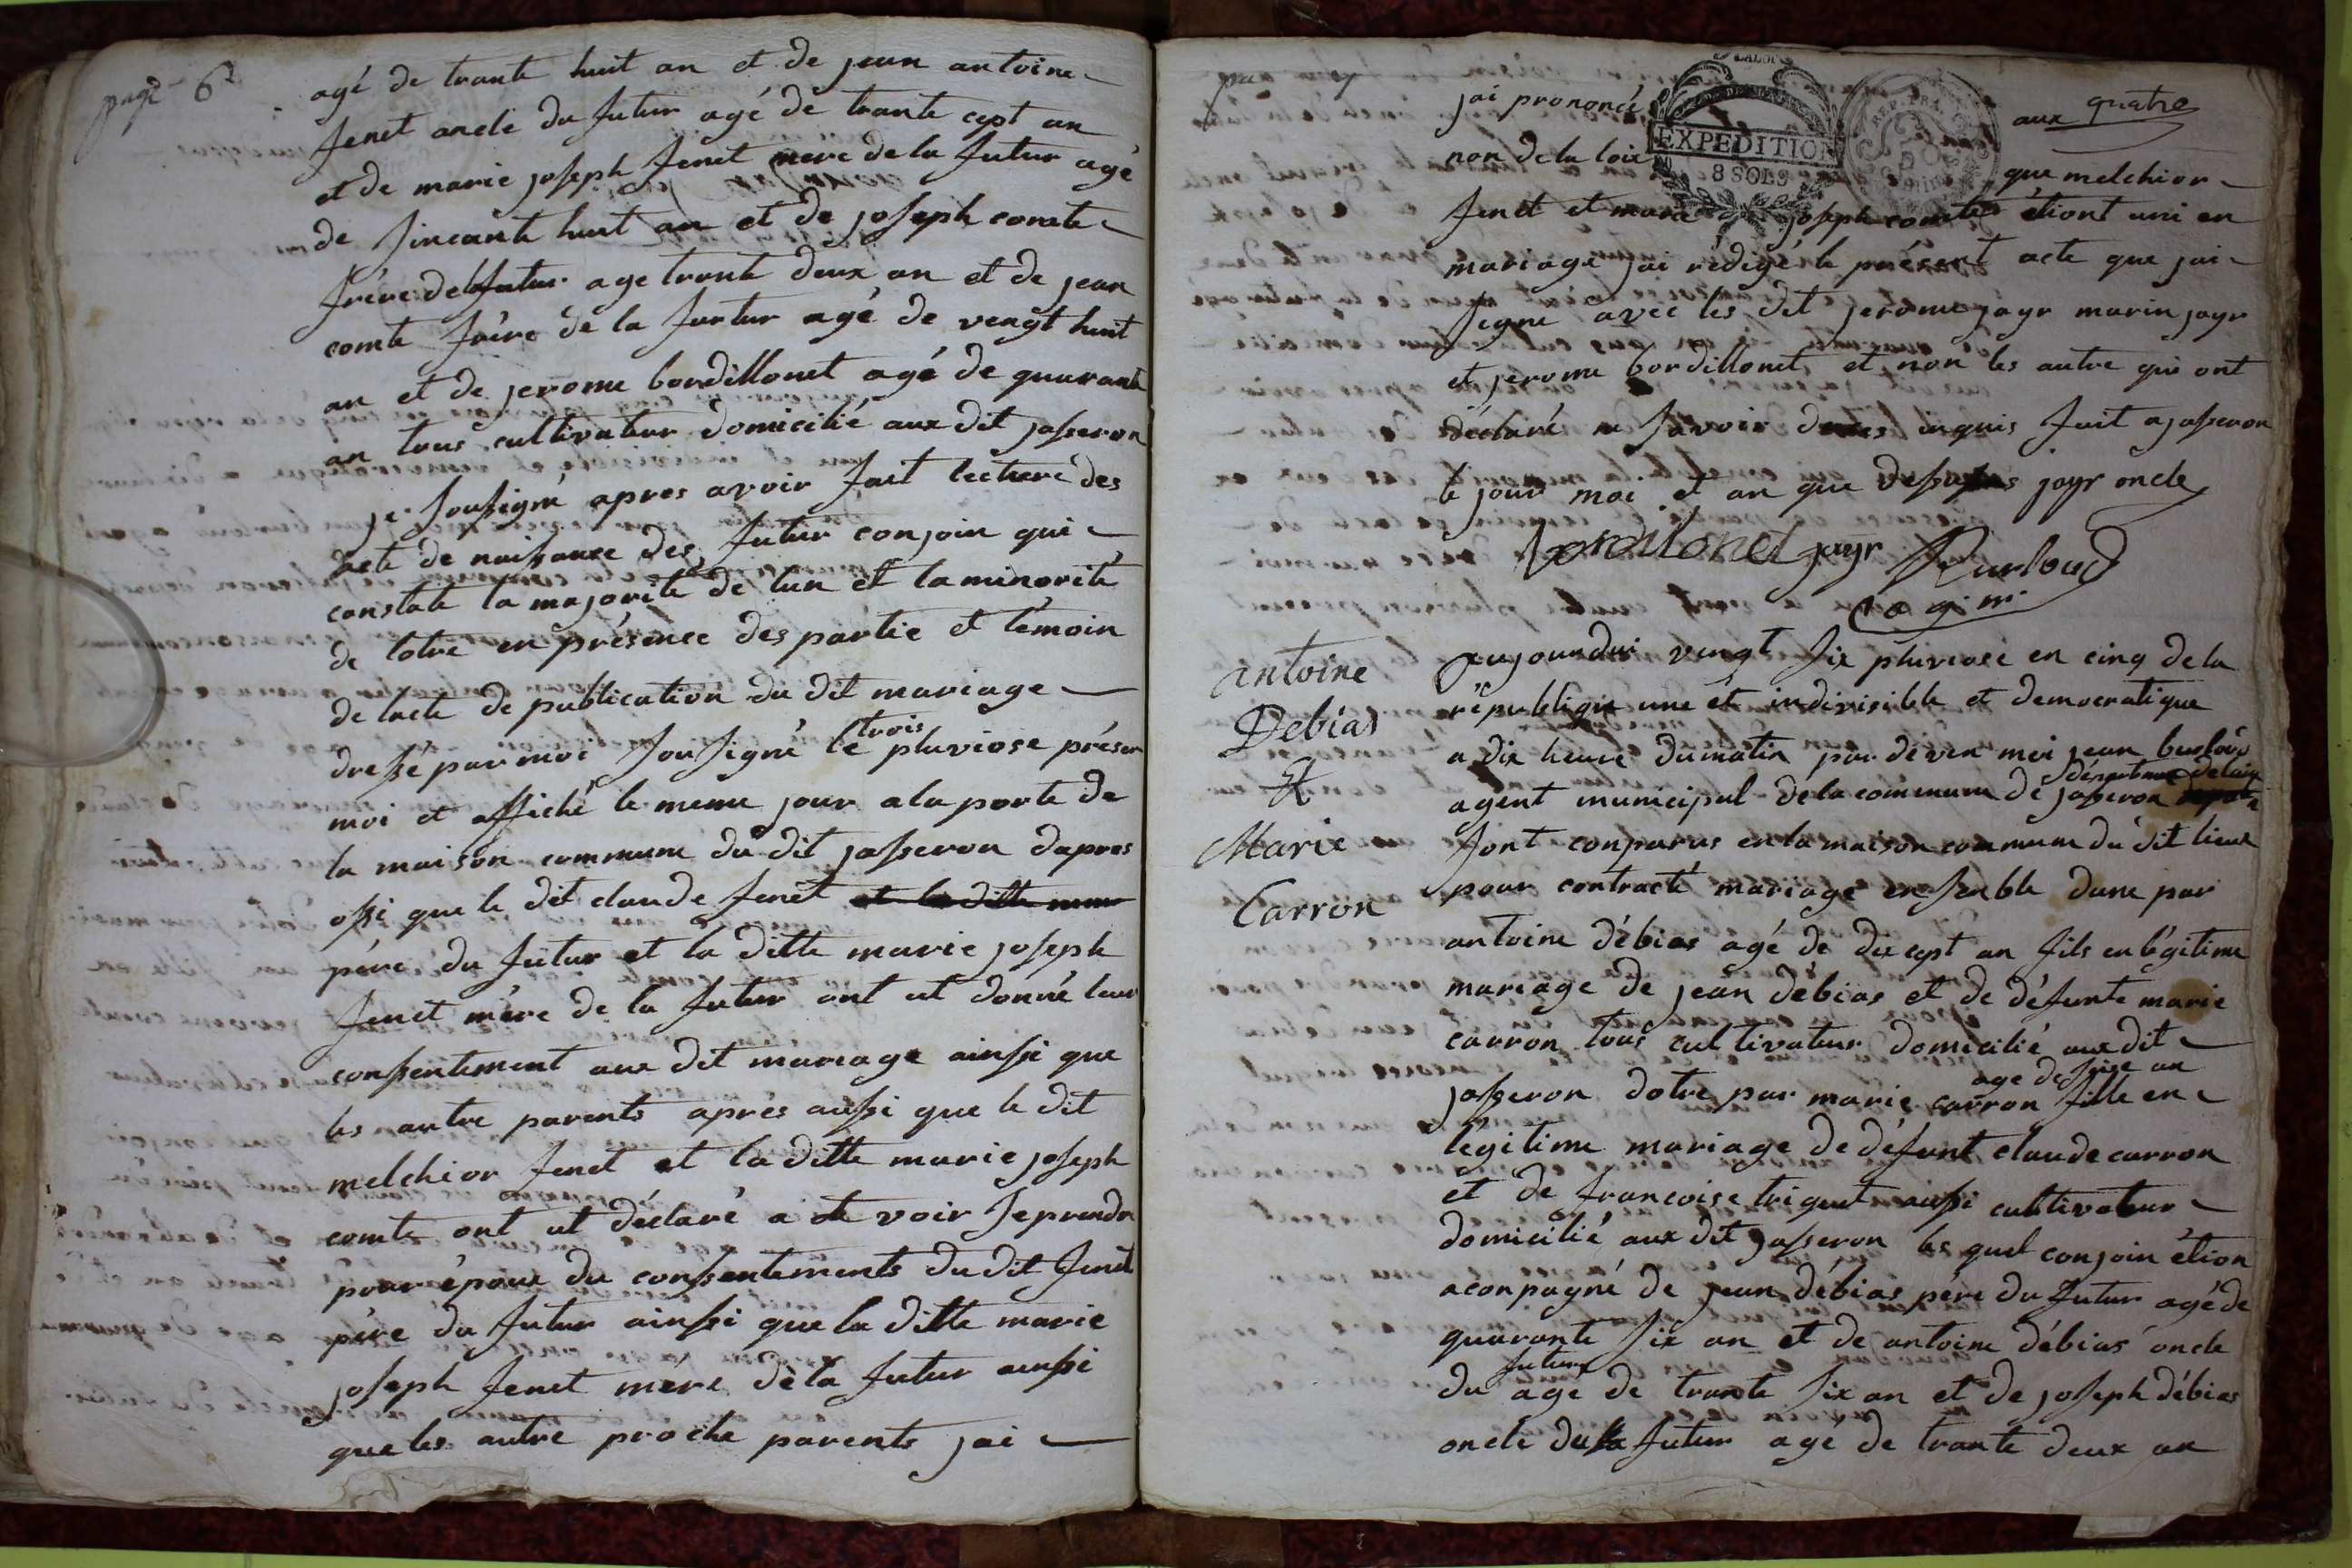 page 6
agé de trante huit an et de jean antoine
fenet oncle du futur agé de trante cept an
et de marie joseph fenet mere de la futur agé
de sincante huit an et de joseph comte
frère de la futur age trante deux an et de jean
comte frère de la furtur agé de vengt huit
an et de jerome bordillonet agé de quarante
an tous cultivateur domicilié aux dit jasseron
je soussigné apres avoir fait lecture des
acte de naissance des futur conjoin qui
constate la majorité de lun et la minorité
de lotre en présence des partie et témoin
de lacte de publication du dit mariage
dressé par moi sousigné le trois pluviose présen
moi et affiché le meme jour a la porte de
la maison commune du dit jasseron dapres
ossi que le dit claude fenet et la ditte
père du futur et la ditte marie joseph
fenet mère de la futur ont ut donné leur
consentement aux dit mareage ainssi que
les autre parents après aussi que le dit
melchior fenet et la ditte marie joseph
comte ont ut déclaré a ote voir se prendre
pour époux du conssentements du dit fenet
père du futur ainssi que la ditte marie
joseph fenet mère de la futur aussi
que les autre proche parents jai
jai prononcé aux quatre
EXPEDITION
8 SOLS
non de la loix que melchior
fenet et marie joseph comte étiont uni en
mariage jai rédigé le présent acte que jai
signe avec les dit jerome jayr marin jayr
et jerome bordillonet et non les autre qui ont
déclaré ne savoir de ces inquis fait a jasseron
le jour moi et an que dessus jayr oncle
bordilonet jayr Burloud
ag. m.
antoine
Debias
et
Marie
Carron
aujourdui vengt six pluviose en cinq de la
république une et indivisible et democratique
a dix heure du matin par deven moi jean burloud
agent municipal de la commune de jasseron département delain
sont conparus en la maison commune du dit lieux
pour contracté mariage ensenble dune par
antoine débias agé de dix cept an fils en légitime
mariage de jean débias et de défunte marie
carron tous cultivateur domicilié aux dit
jasseron dotre par marie carron age de seise an fille en
légitime mariage de défunt claude carron
et de francoise triquet aussi cultivateur
domicilié aux dit jasseron les quel conjoin étion
aconpagné de jean débias père du futur agé de
quarante six an et de antoine débias oncle
du futur agé de trante six an et de joseph débias
oncle du futur agé de trante deux an